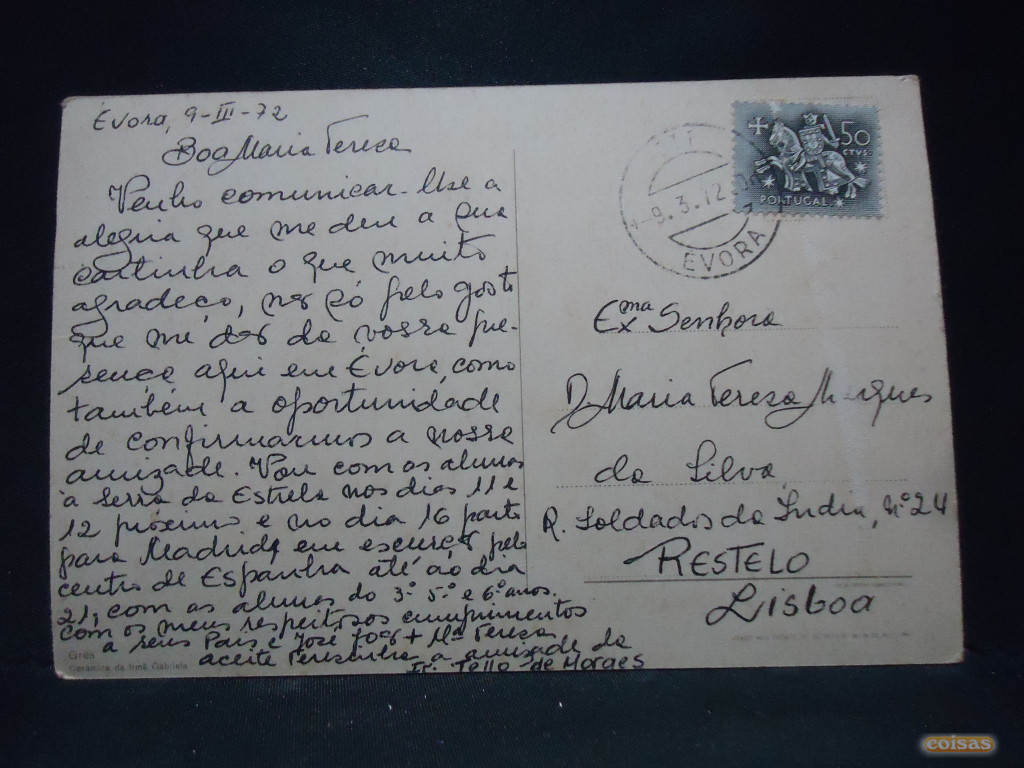 Évora, 9-III-72
Boa Maria Teresa
Venho comunicar-lhe a
alegria que me deu a sua
cartinha o que muito
agradeço, não só pelo gosto
que me dão da vossa pre-
sença aqui em Évora, como
também a oportunidade
de confirmarmos a nossa
amizade. Vou com os alunos
à Serra da Estrela nos dias 11 e
12 próximo e no dia 16 parto
para Madrid, em escursão pelo
centro de Espanha até ao dia
21, com as alunas do 3º 5.º e 6º anos.
Com os meus respeitosos cumprimentos
a seus Pais e José João + Mª Teresa
aceite Teresinha a amizade do
Tello de Moraes
Grés
Cerâmica da Irmã Gabriela
CTT
9.3.72
ÉVORA
50
CTVS.
PORTUGAL
Exma Senhora
D. Maria Teresa Marques
da Silva
R. Soldados da Índia, nº 24
RESTELO
Lisboa
coisas